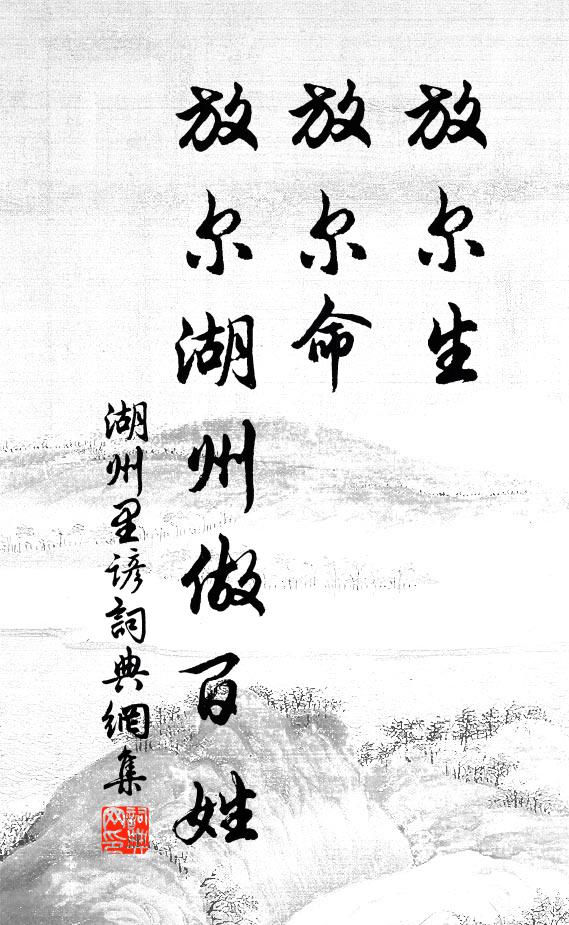 放尔生
放尔命
放尔湖州做百姓
湖州里谚詞典網集